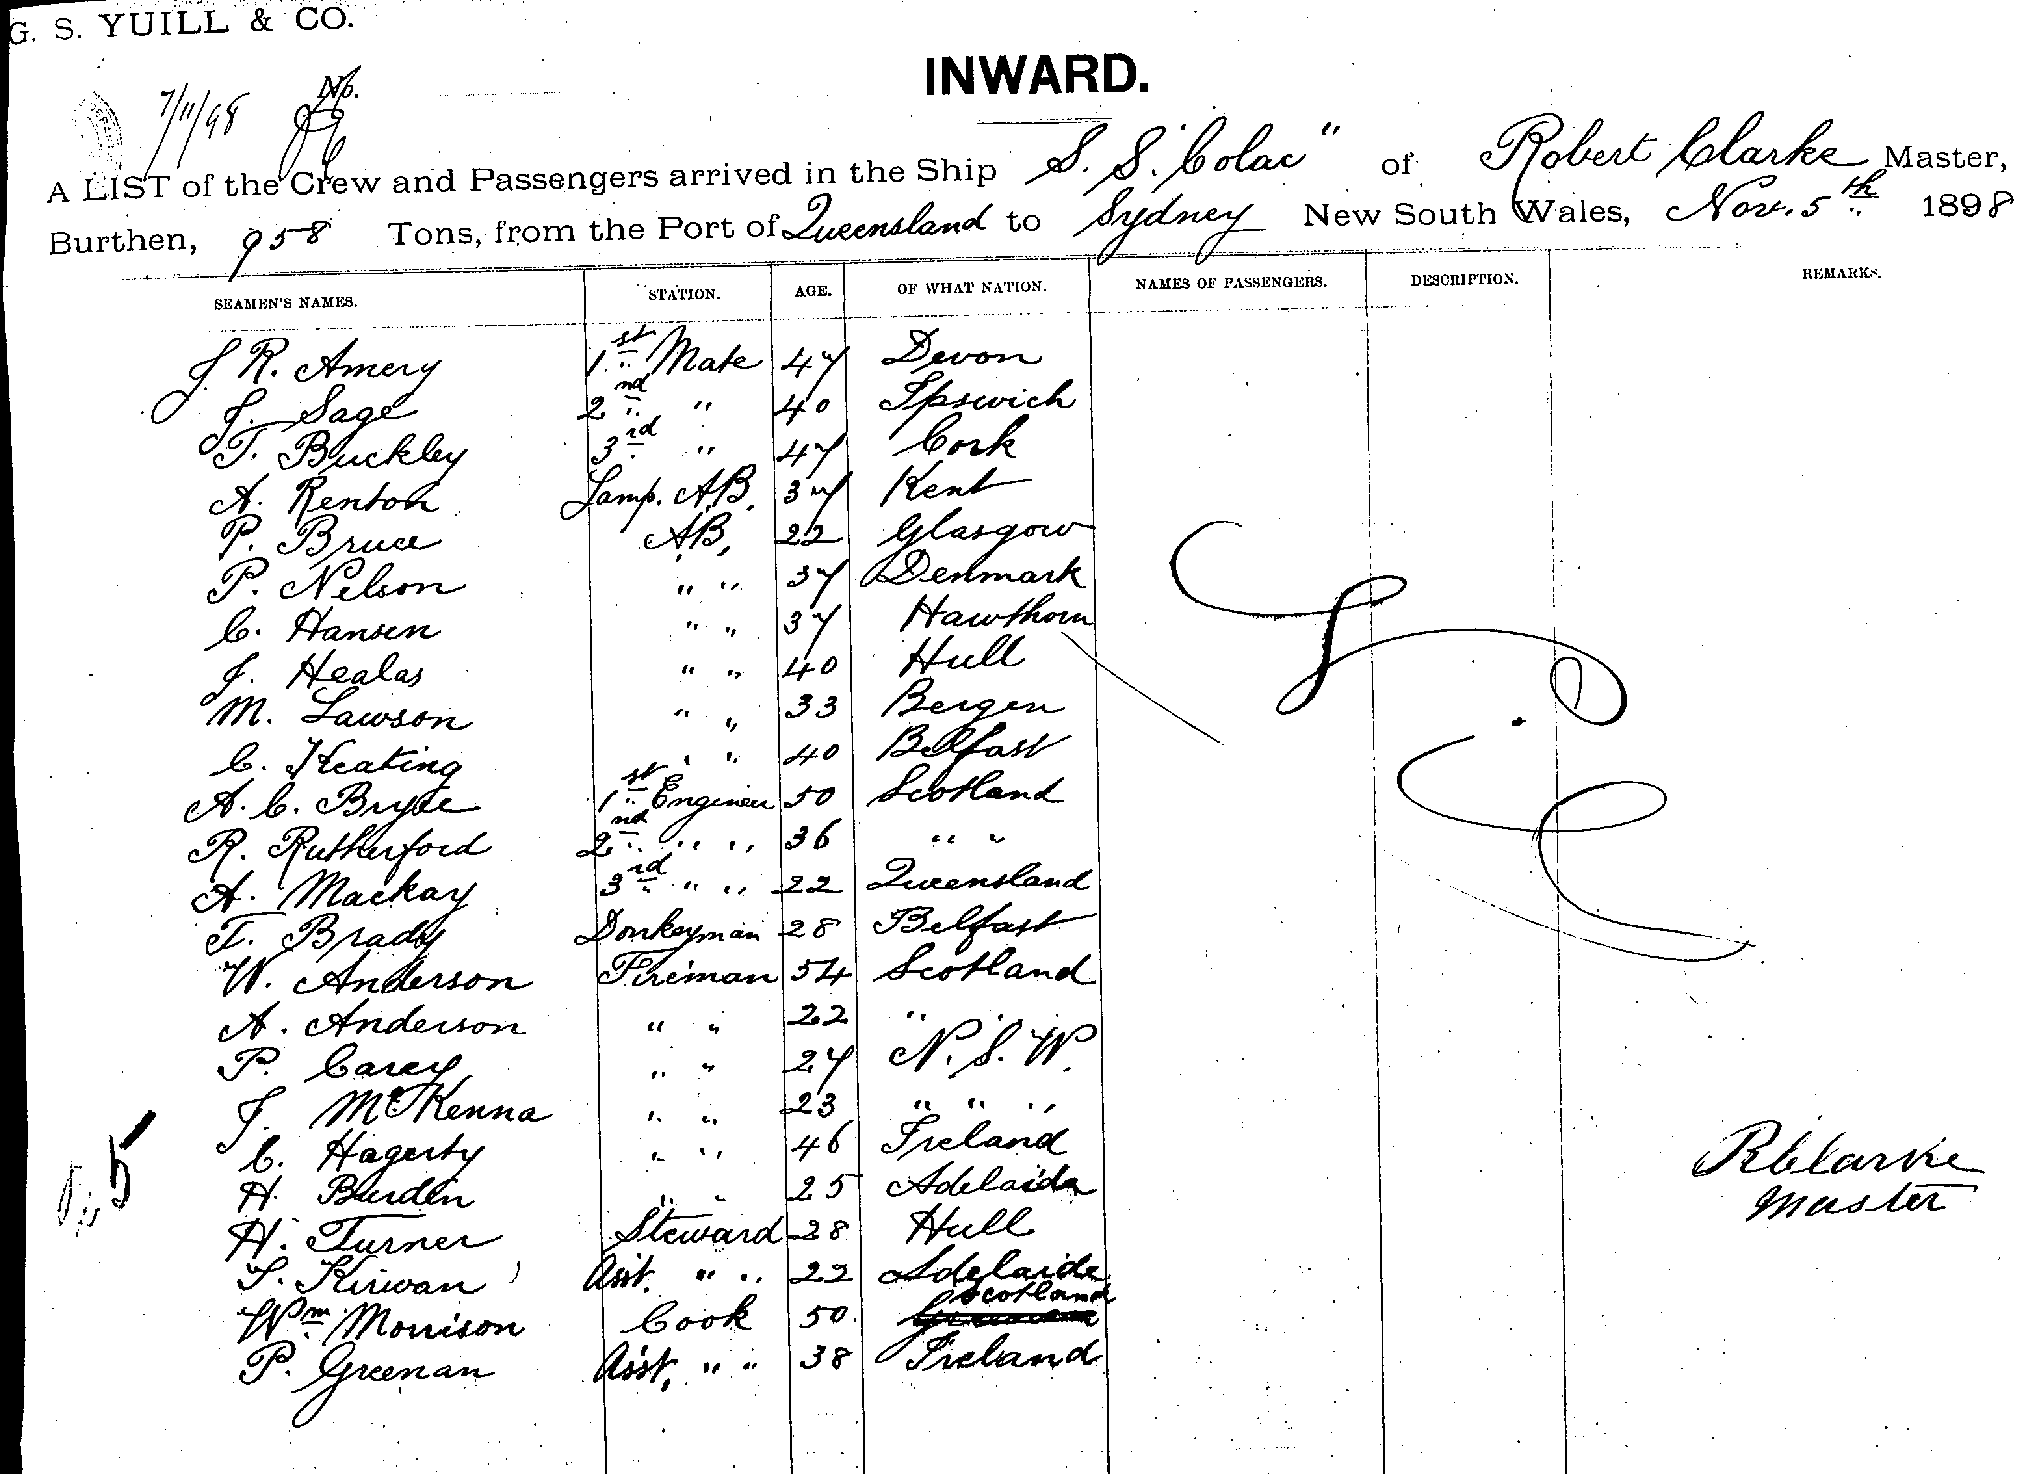 G. S. YUILL & CO.
INWARD.
7/11/98 No.
A LIST of the Crew and Passengers arrived in the Ship S. S. "Colac" of Robert Clarke Master,
Burthen, 958 Tons, from the Port of Queensland to Sydney New South Wales, Nov. 5th 1898
SEAMEN'S NAMES. STATION. AGE. OF WHAT NATION. NAMES OF PASSENGERS. DESCRIPTION. REMARKS.
J. R. Amery 1st Mate 47 Devon
J. Sage 2nd " 40 Ipswich
T. Buckley 3rd " 47 Cork
A. Renton Lamp. AB. 37 Kent
P. Bruce AB, 22 Glasgow
P. Nelson " " 37 Denmark
C. Hansen " " 37 Hawthorn
J. Healas " " 40 Hull
M. Lawson " " 33 Bergen
C. Keating " " 40 Belfast
A. C. Bryce 1st Engineer 50 Scotland
R. Rutherford 2nd " " 36 " "
A. Mackay 3rd " " 22 Queensland
T. Brady Donkeyman 28 Belfast
W. Anderson Fireman 54 Scotland
A. Anderson " " 22 "
P. Carey " " 27 N. S. W.
J. McKenna " " 23 " " "
C. Hagerty " " 46 Ireland
H. Burden " " 25 Adelaide
H. Turner Steward 28 Hull
S. Kirwan Asst. " " 22 Adelaide
Wm Morrison Cook 50. Scotland
P. Greenan Asst, " " 38 Ireland
R Clarke
Master
5